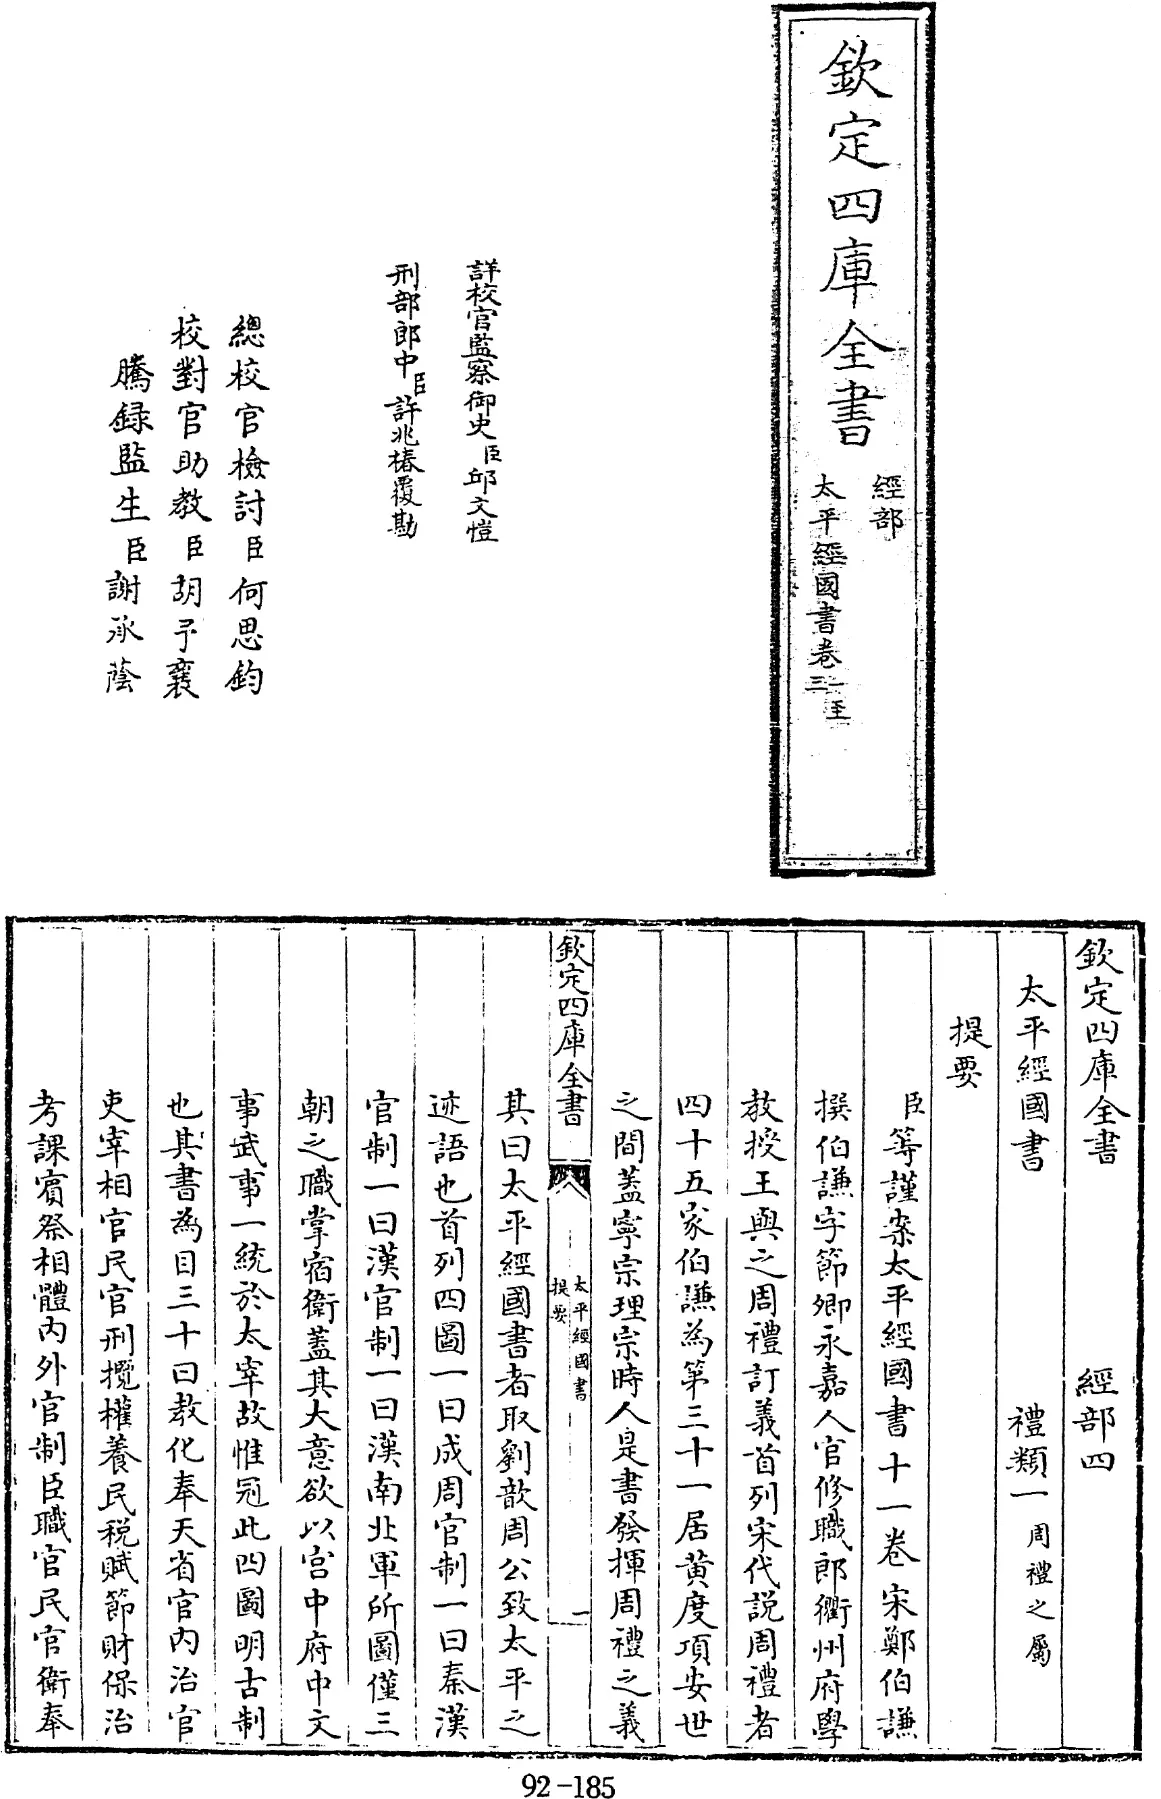 欽定四庫全書
經部
太平經國書卷一至三
詳校官監察御史臣邱文愷
刑部郎中臣許兆椿覆勘
總校官檢討臣何思鈞
校對官助教臣胡予襄
騰録監生臣謝承蔭
欽定四庫全書 經部四
太平經國書 禮類一周禮之屬
提要
臣等謹案太平經國書十一卷宋鄭伯謙
撰伯謙字節卿永嘉人官修職郎衢州府學
教授王與之周禮訂義首列宋代説周禮者
四十五家伯謙為第三十一居黄度項安世
之間蓋寧宗理宗時人是書發揮周禮之義
欽定四庫全書 太平經國書 提要 一
其曰太平經國書者取劉歆周公致太平之
迹語也首列四圖一曰成周官制一曰秦漢
官制一曰漢官制一曰漢南北軍所圖僅三
朝之職掌宿衛蓋其大意欲以宫中府中文
事武事一統於太宰故惟冠此四圖明古制
也其書為目三十曰教化奉天省官内治官
吏宰相官民官刑攬權養民税賦節財保治
考課賓祭相體内外官制臣職官民官衛奉
92-185